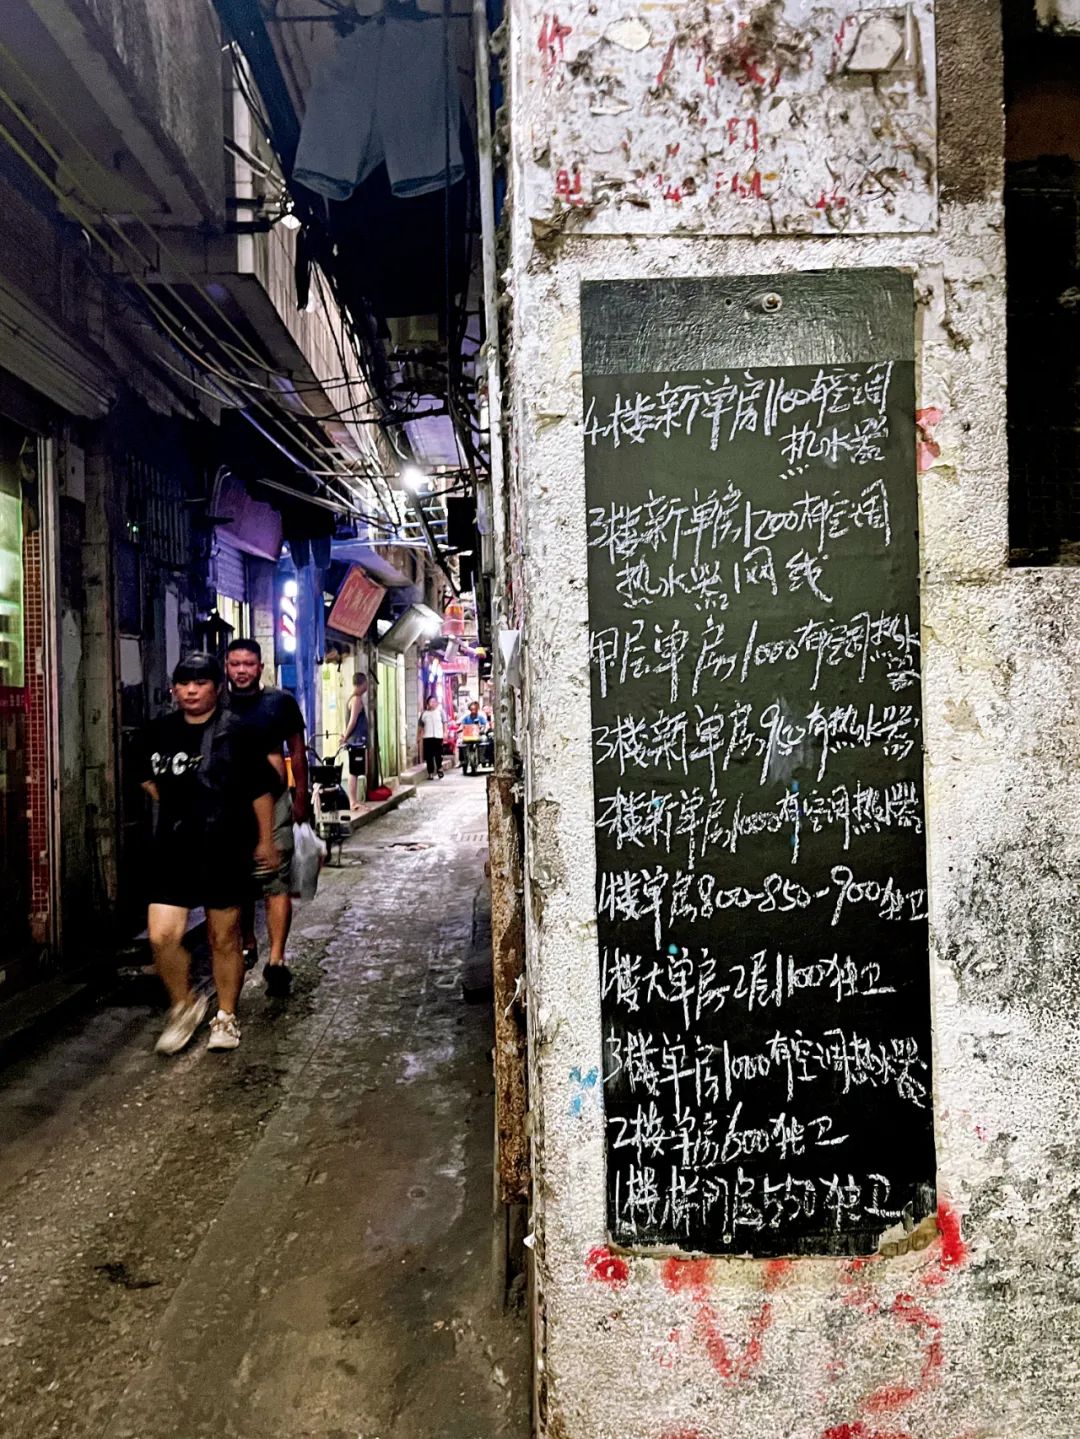 4楼新单房1100有空调
热水器
3楼新单房1200有空调
热水器 网线
单房1000有空调热水
器
3楼新单房900有热水器
2楼新单房1000有空调热水器
1楼单房800-850-900独卫
1楼大单房2层1100独卫
3楼单房1000有空调热水器
2楼单房600独卫
1楼 房550独卫